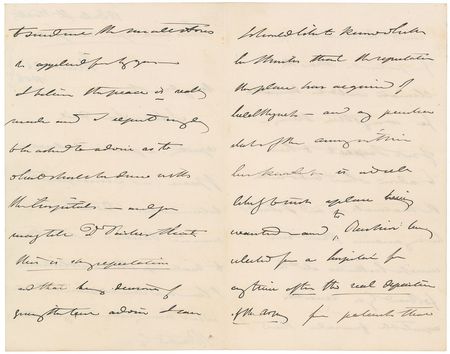 to send me the small stores
as applied for by you —
I believe the peace is really
made and I expect
to be asked to advise as to
what should be done with
the hospitals — and you
may tell Dr Parkes that
this is my expectation
and that being desirous of
giving the best advice I can
I should like to know whether
he thinks that the reputation
the place has acquired of
healthiness — and any peculiar
of the army within
his knowledge is
of such a place being
wanted — and to Renkioi being
selected for a hospital for
any time after the real departure
of the army for patients there